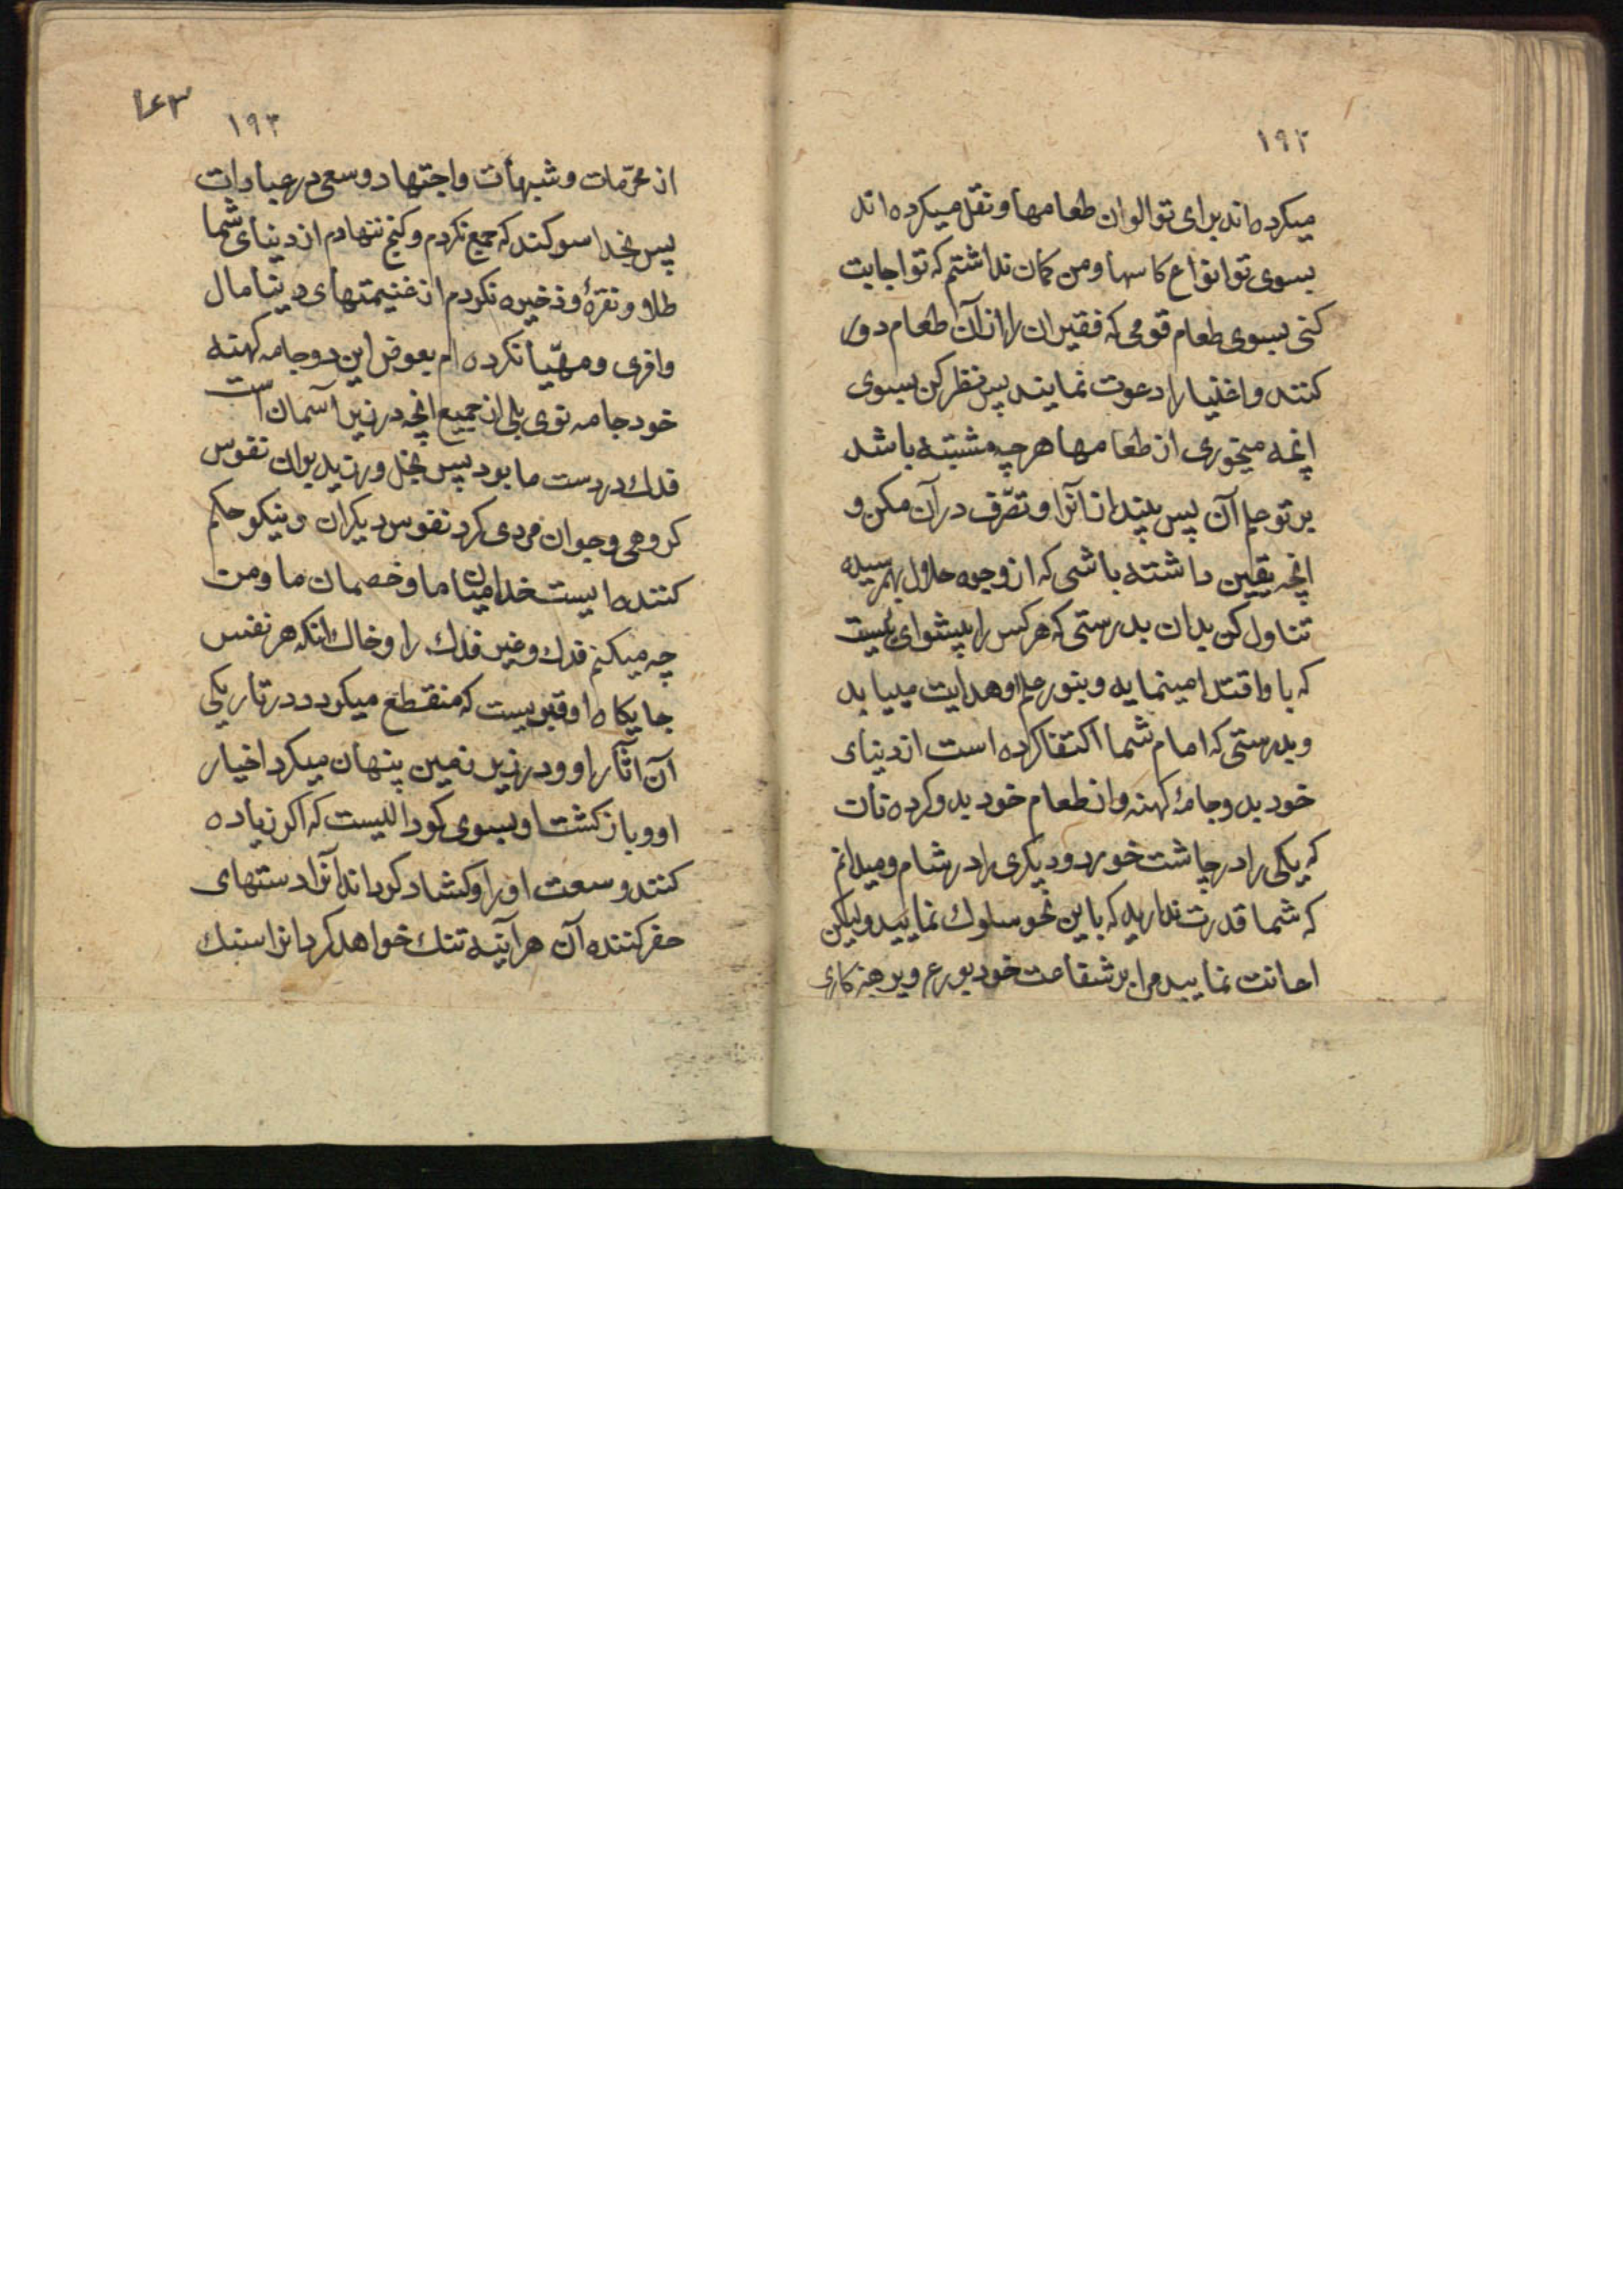 ۱۹۲
میکرده‌اند برای تو الوان طعامها و نقل میکرده‌اند
بسوی تو انواع کاسها و من کمان نداشتم که تو اجابت
کنی بسوی طعام قومی که فقیران را از آن طعام دور
کنند و اغنیا را دعوت نمایند پس نظر کن بسوی
انچه میخوری از طعامها هر چه مشتبه باشد
بر تو علم آن پس بینداز آنرا و تصّرف در آن مکن و
انچه یقین داشته باشی که از وجوه حلال بهمرسیده
تناول کن بدان بدرستی که هر کس را پیشوای هست
که باو اقتدا مینماید و بنور علم او هدایت مییابد
و بدرستی که امام شما اکتفا کرده است از دنیای
خود بدو جامهٔ کهنه و از طعام خود بدو کرده نان
که یکی را در چاشت خورد و دیکری را در شام و میدانم
که شما قدرت ندارید که باین نحو سلوك نمایید ولیکن
اعانت نمایید مرا بر شفاعت خود بورع و پرهیزکاری
۱۶۳
۱۹۳
از محرّمات و شبهات و اجتهاد و سعی در عبادات
پس بخدا سوکند که جمع نکردم و کنج ننهادم از دنیای شما
طلا و نقرهٔ و ذخیره نکردم از غنیمتهای دینا مال
وافری و مهیّا نکرده ام بعوض این دو جامه کهنه
خود جامه نوی بلی از جمیع انچه در زیر آسمان است
فدك در دست ما بود پس بخل ورزید بران نفوس
کروهی و جوان مردی کرد نفوس دیکران و نیکو حکم
کننده ایست خدا میان ما و خصمان ما و من
چه میکنم فدك و غیر فدك را و حال انکه هر نفس
جایکاه او قبریست که منقطع میکردد در تاریکی
آن آثار او و در زیر زمین پنهان میکردد اخبار
او و بازکشت او بسوی کودالیست که اکر زیاده
کنند وسعت او را و کشاد کردانند آنرا دستهای
حفر کننده آن هر آینه تنك خواهد کرد انرا سنك